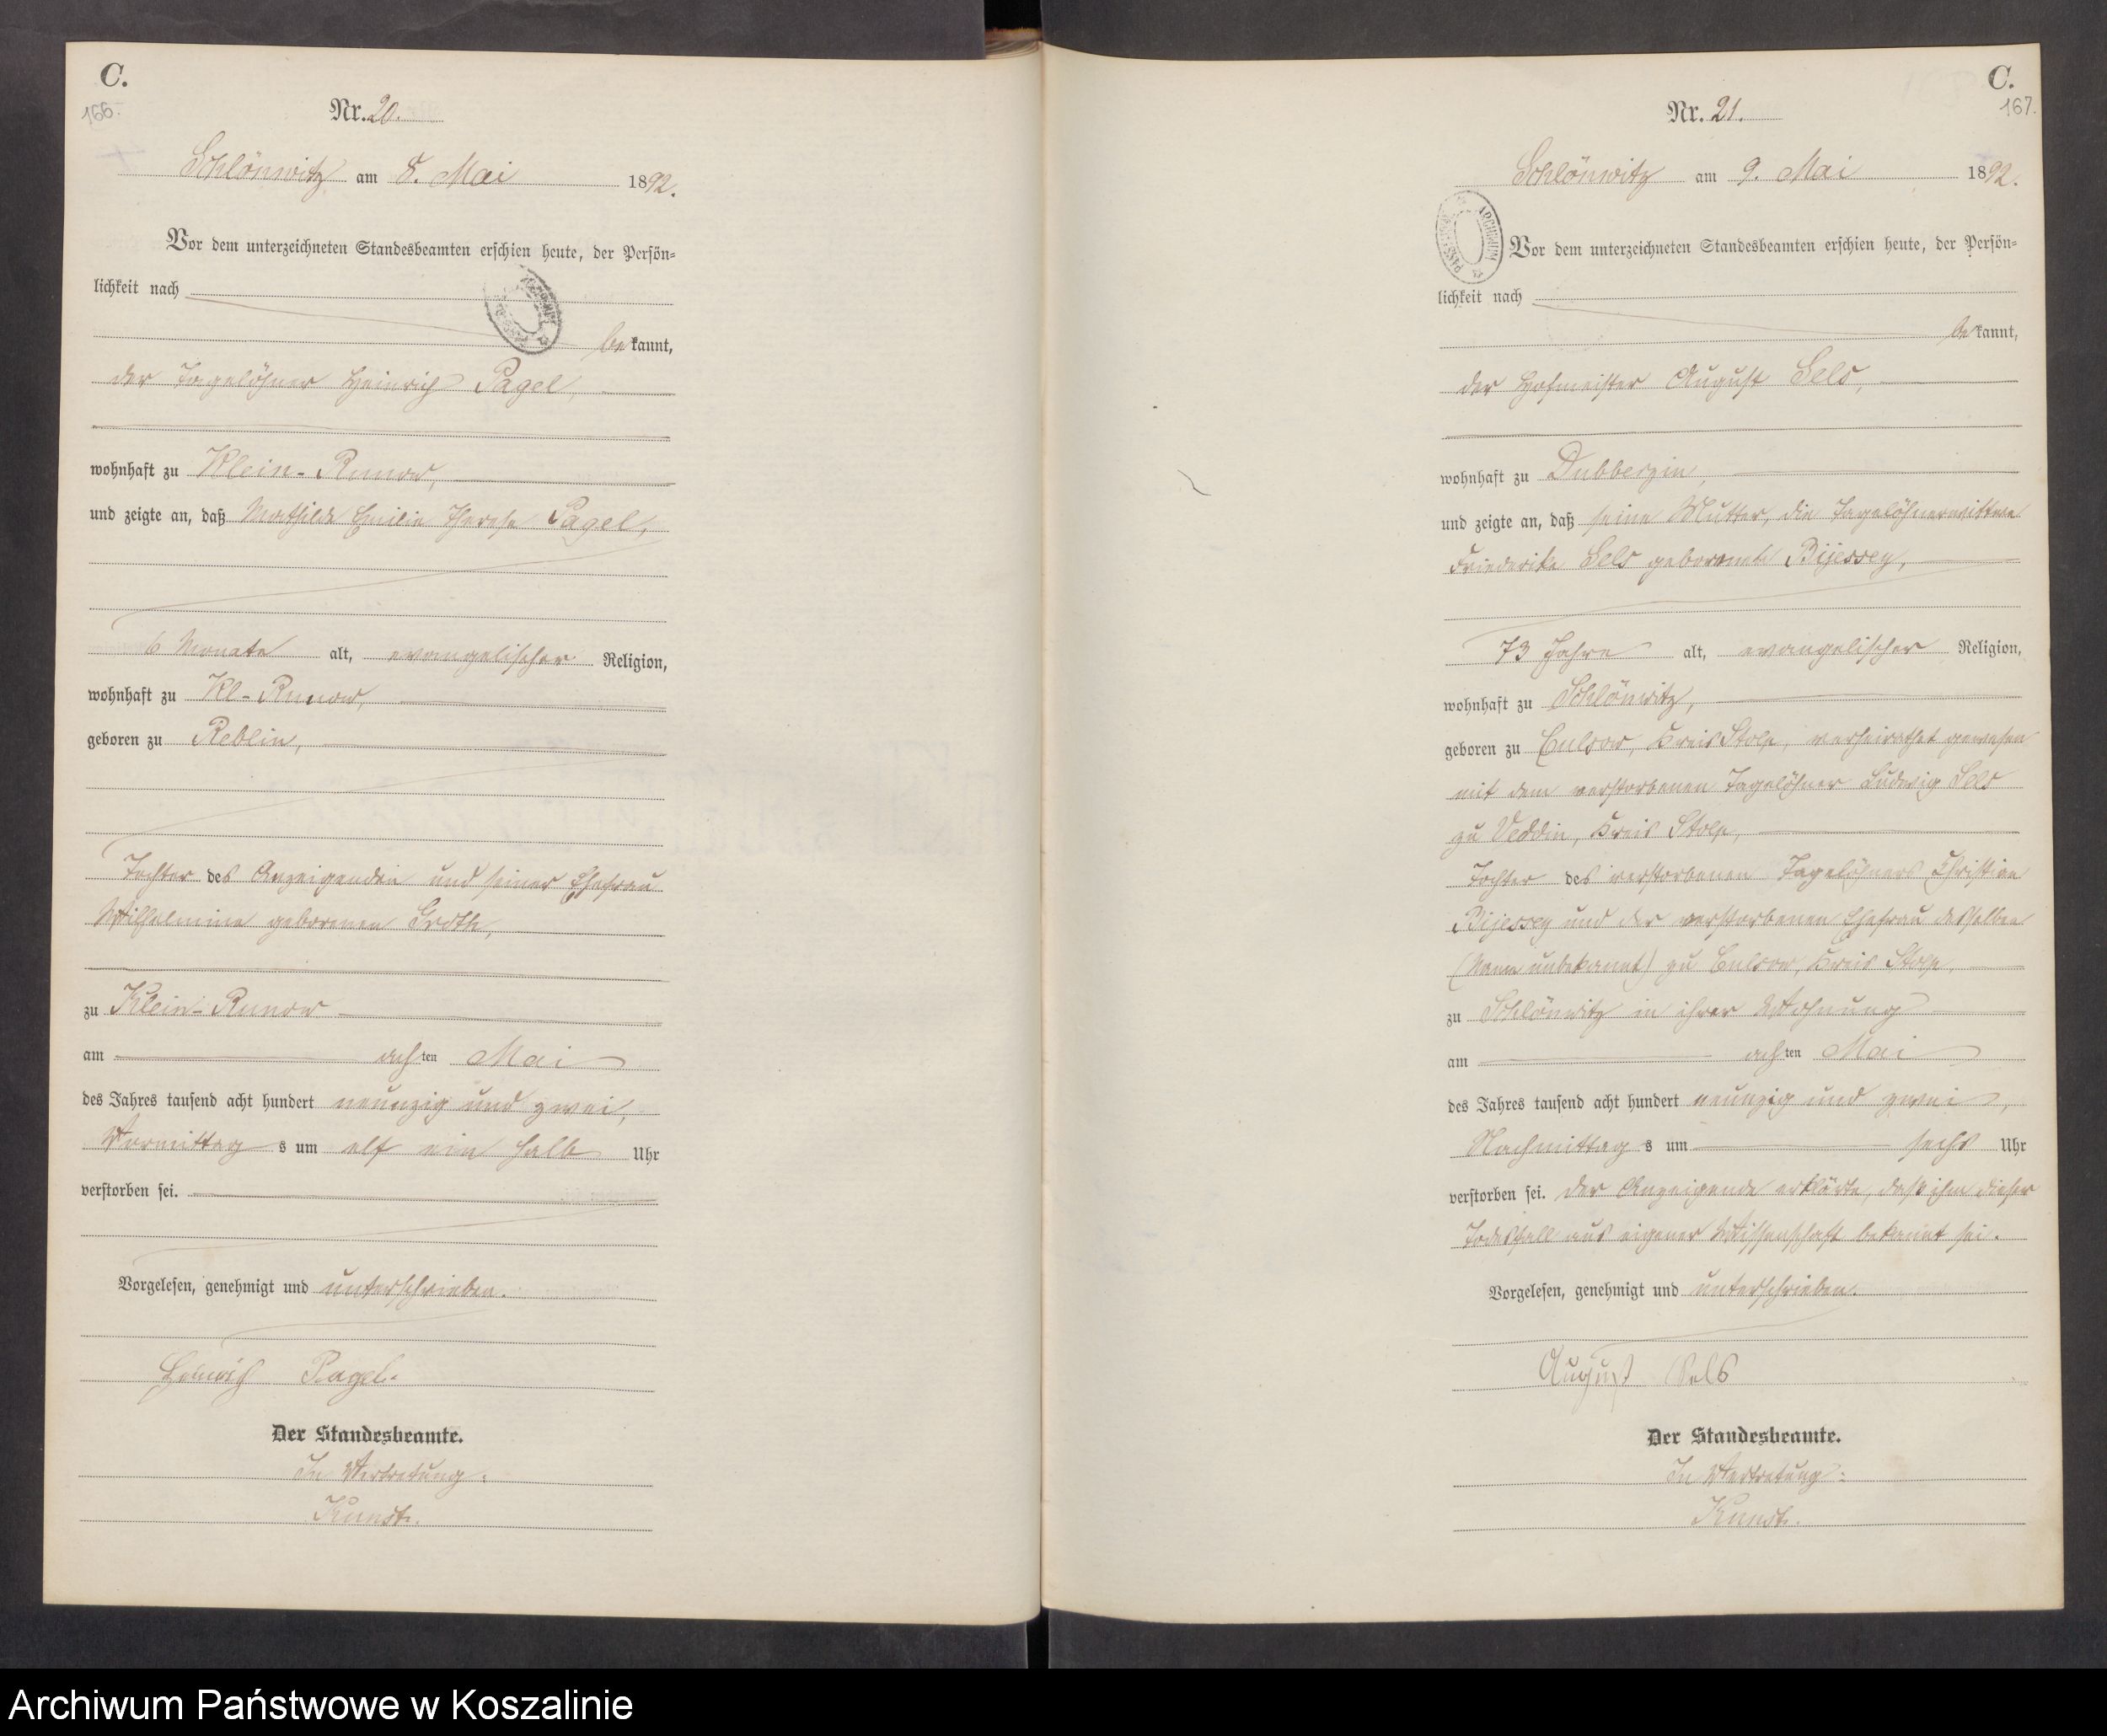 C.
166.
Nr. 20.
Schlönwitz am 8. Mai 1892.
Vor dem unterzeichneten Standesbeamten erschien heute, der Persön-
lichkeit nach
bekannt,
der Tagelöhner Heinrich Pagel,
wohnhaft zu Klein-Runow,
und zeigte an, daß Mathilde Emilie Therese Pagel,
6 Monate alt, evangelischer Religion,
wohnhaft zu Kl-Runow,
geboren zu Reblin,
Tochter des Anzeigenden und seiner Ehefrau
Wilhelmine geborenen Groth,
zu Klein-Runow
am achten Mai
des Jahres tausend acht hundert neunzig und zwei,
Vormittags um elf ein halb Uhr
verstorben sei.
Vorgelesen, genehmigt und unterschrieben.
Heinrich Pagel.
Der Standesbeamte.
In Vertretung:
Kunst.
C.
167.
Nr. 21.
Schlönwitz am 9. Mai 1892.
Vor dem unterzeichneten Standesbeamten erschien heute, der Persön-
lichkeit nach
bekannt,
der Hofmeister August Sels,
wohnhaft zu Dubberzin,
und zeigte an, daß seine Mutter, die Tagelöhnerwittwe
Friederike Sels geborene Bijessey,
73 Jahre alt, evangelischer Religion,
wohnhaft zu Schlönwitz,
geboren zu Culsow, Kreis Stolp, verheirathet gewesen
mit dem verstorbenen Tagelöhner Ludwig Sels
zu Veddin, Kreis Stolp,
Tochter des verstorbenen Tagelöhners Christian
Bijessey und der verstorbenen Ehefrau desselben
(Name unbekannt) zu Culsow, Kreis Stolp,
zu Schlönwitz in ihrer Wohnung
am achten Mai
des Jahres tausend acht hundert neunzig und zwei,
Nachmittags um sechs Uhr
verstorben sei. Der Anzeigende erklärte, daß ihm dieser
Todesfall aus eigener Wissenschaft bekannt sei.
Vorgelesen, genehmigt und unterschrieben.
August Sels
Der Standesbeamte.
In Vertretung:
Kunst.
Archiwum Państwowe w Koszalinie